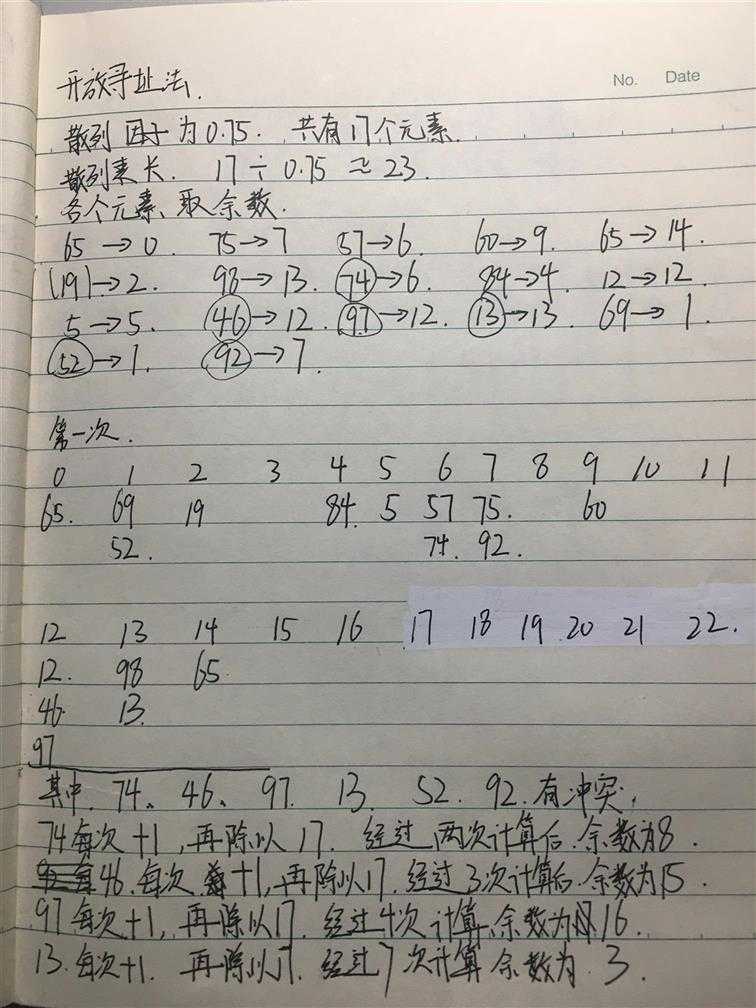 No. Date
开放寻址法.
散列因子为0.75. 共有17个元素.
散列表长. 17÷0.75≈23.
各个元素取余数.
65→0. 75→7 57→6. 60→9. 65→14.
(19)→2. 98→13. 74→6. 84→4. 12→12.
5→5. 46→12. 97→12. 13→13. 69→1.
52→1. 92→7.
第一次.
0 1 2 3 4 5 6 7 8 9 10 11
65. 69 19 84. 5 57 75. 60
52. 74. 92.
12 13 14 15 16 17 18 19 20 21 22.
12. 98 65.
46. 13.
97
其中. 74、46、97. 13. 52. 92. 有冲突.
74每次+1, 再除以17. 经过两次计算后. 余数为8.
46. 每次+1, 再除以17. 经过3次计算后. 余数为15.
97每次+1, 再除以17. 经过4次计算. 余数为16.
13. 每次+1. 再除以17. 经过7次计算 余数为. 3.